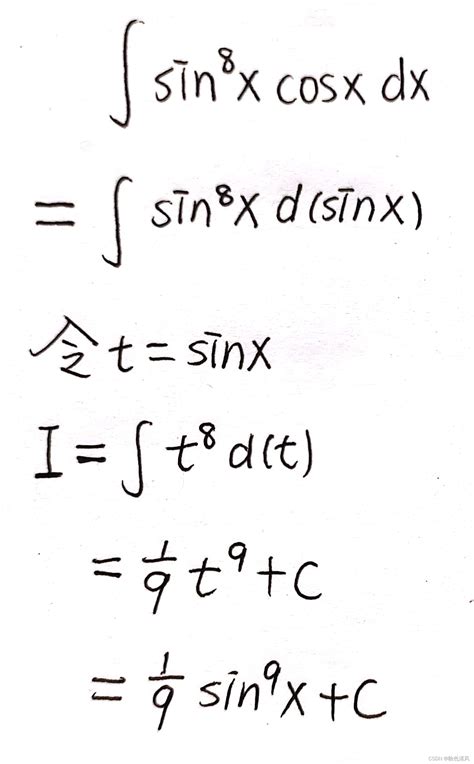 ∫ sin⁸x cosx dx
= ∫ sin⁸x d(sinx)
令 t = sinx
I = ∫ t⁸ d(t)
= 1/9 t⁹ + C
= 1/9 sin⁹x + C